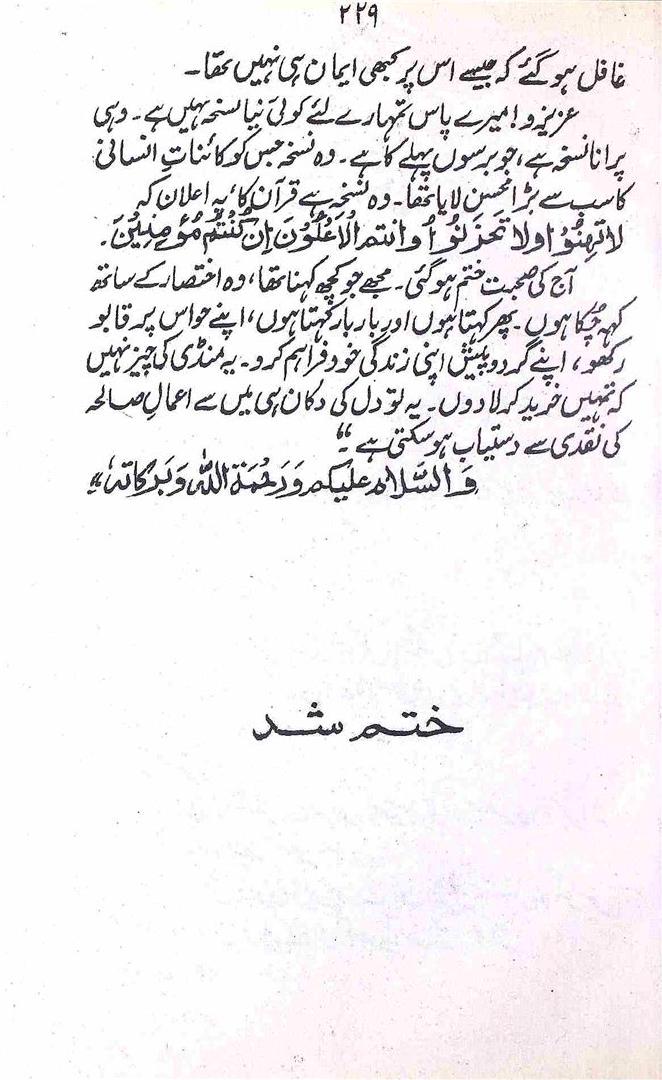 ۲۲۹
غافل ہو گئے کہ جیسے اس پر کبھی ایمان ہی نہیں تھا۔
عزیزو! میرے پاس تمہارے لئے کوئی نیا نسخہ نہیں ہے۔ وہی
پرانا نسخہ ہے، جو برسوں پہلے کا ہے۔ وہ نسخہ جس کو کائناتِ انسانی
کا سب سے بڑا محسن لایا تھا۔ وہ نسخہ ہے قرآن کا، یہ اعلان کہ
لا تَهِنُوْا ولا تَحْزَنُوْا وانتم الْاَعْلَوْنَ اِنْ كُنْتُمْ مُؤْمِنِيْنَ۔
آج کی صحبت ختم ہو گئی۔ مجھے جو کچھ کہنا تھا، وہ اختصار کے ساتھ
کہہ چکا ہوں۔ پھر کہتا ہوں اور بار بار کہتا ہوں، اپنے حواس پر قابو
رکھو، اپنے گرد و پیش اپنی زندگی خود فراہم کرو۔ یہ منڈی کی چیز نہیں
کہ تمہیں خرید کر لا دوں۔ یہ تو دل کی دکان ہی میں سے اعمالِ صالحہ
کی نقدی سے دستیاب ہو سکتی ہے۔“
وَالسَّلام علیکم وَرَحْمَةُ اللّٰہ وَبَرَکاتہ،“
ختم شد